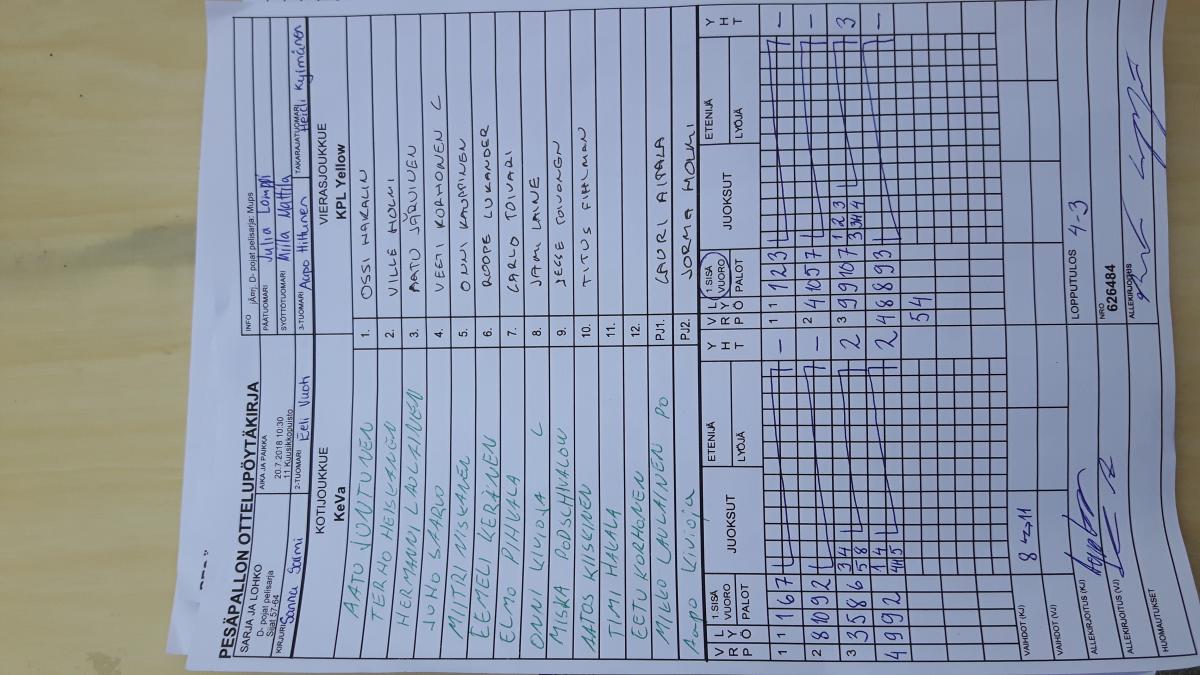 PESÄPALLON OTTELUPÖYTÄKIRJA
SARJA JA LOHKO
D- pojat pelisarja
Sijat 57-64
AIKA JA PAIKKA
20.7.2018 10:30
11 Kuusikkopuisto
INFO jÄrrj. D- pojat pelisarja: Mups
PÄÄTUOMARI Julia Lomppi
SYÖTTÖTUOMARI Milla Mattila
KIRJURI Sanna Sormi
2-TUOMARI Eeli Vuoti
3-TUOMARI Aapo Hiltunen
TAKARAJATUOMARI Heidi Kylmänen
KOTIJOUKKUE
KeVa
VIERASJOUKKUE
KPL Yellow
AATO JUNTUNEN 1. OSSI HAKALIN
TERHO HEISKANEN 2. VILLE HOLMI
HERMANNI LAULAINEN 3. AATU JÄRVINEN
JUHO SARKO 4. VEETI KORHONEN C
MITRI MISKANEN 5. ONNI KAUPPINEN
EEMELI KERÄNEN 6. ROOPE LUKANDER
ELMO PIHVALA 7. CARLO TOIVARI
ONNI KIVIOJA C 8. JAMI LAINE
MISKA PODSCHIVALOW 9. JESSE TOIVONEN
AATOS KIISKINEN 10. TITUS FIHLMAN
TIMI HAKALA 11.
EETU KORHONEN 12.
MILLO LAULAINEN PO PJ1. LAURI AITALA
Aapo Kivioja PJ2. JORMA HOLMI
V R Ö L Y P 1.SISÄ VUORO PALOT JUOKSUT ETENIJÄ LYÖJÄ Y H T
V R Ö L Y P 1.SISÄ VUORO PALOT JUOKSUT ETENIJÄ LYÖJÄ Y H T
1 1 1 6 7 – 1 1 1 2 3 –
2 8 10 9 2 – 2 4 10 5 7 –
3 3 5 8 6 3 4 5 8 2 3 9 9 10 7 1 2 3 3 3 4 4 3
4 9 9 2 1 4 4 5 2 4 8 8 9 3 –
5 4
VAIHDOT (KJ) 8 ↔ 11
VAIHDOT (VJ)
LOPPUTULOS 4-3
ALLEKIRJOITUS (KJ)
NRO 626484
ALLEKIRJOITUS (VJ)
ALLEKIRJOITUS
HUOMAUTUKSET